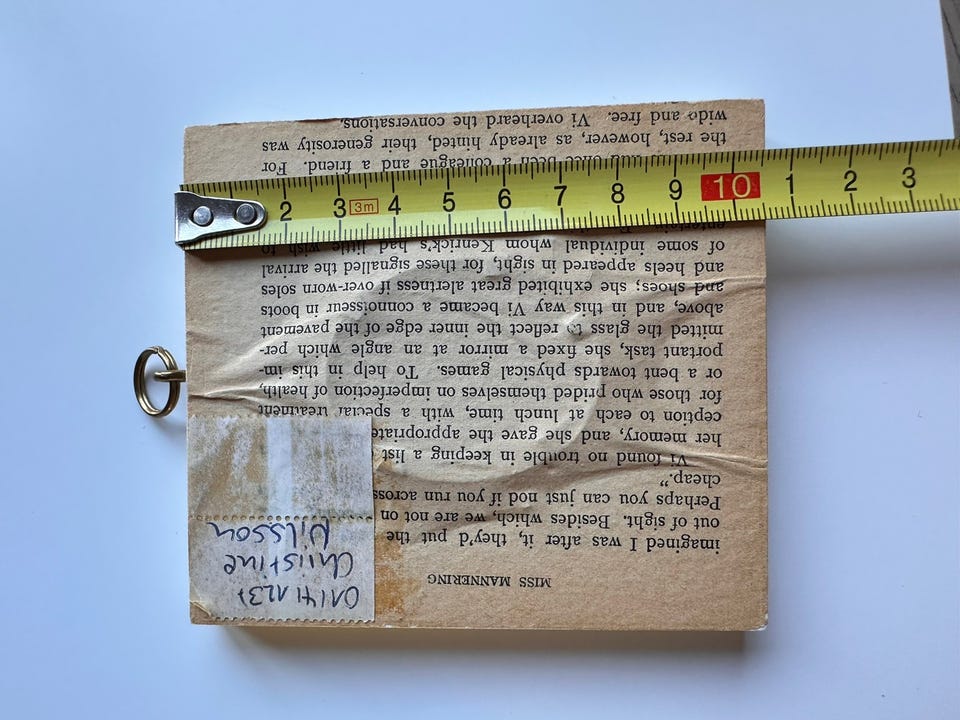 2 3 3m 4 5 6 7 8 9 10 1 2 3
MISS MANNERING
imagined I was after it, they'd put the
out of sight. Besides which, we are not on
Perhaps you can just nod if you run across
cheap."
Vi found no trouble in keeping a list
her memory, and she gave the appropriate
ception to each at lunch time, with a special treatment
for those who prided themselves on imperfection of health,
or a bent towards physical games. To help in this im-
portant task, she fixed a mirror at an angle which per-
mitted the glass to reflect the inner edge of the pavement
above, and in this way Vi became a connoisseur in boots
and shoes; she exhibited great alertness if over-worn soles
and heels appeared in sight, for these signalled the arrival
of some individual whom Kenrick's had little wish to
once been a colleague and a friend. For
the rest, however, as already hinted, their generosity was
wide and free. Vi overheard the conversations,
Christine
Nilsson